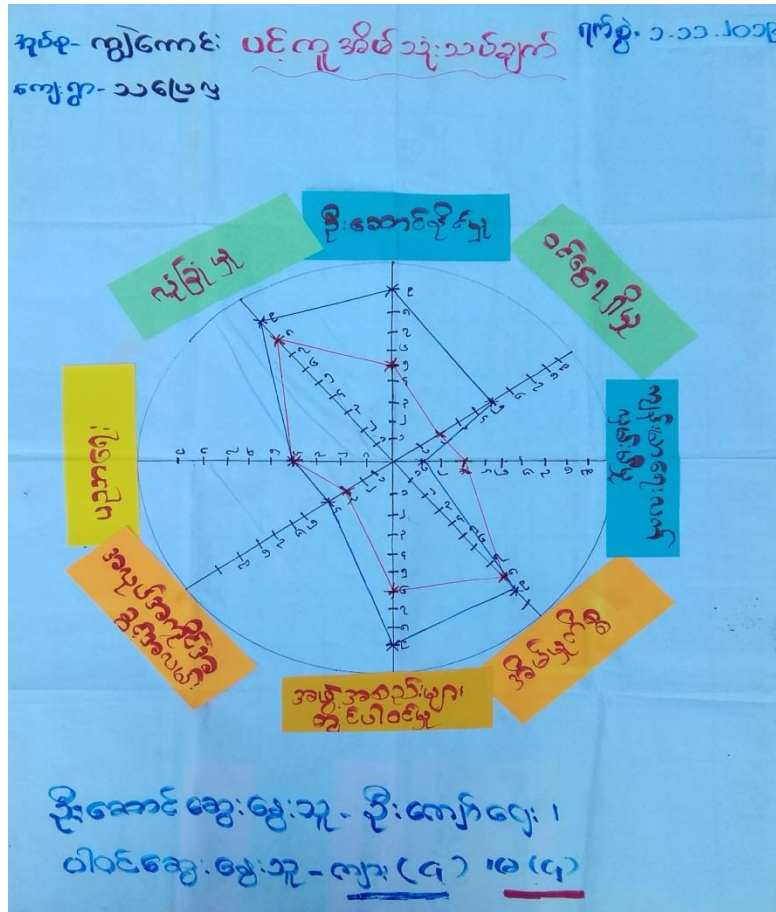 အုပ်စု- ကျွဲကောင်း
ပင့်ကူအိမ်သုံးသပ်ချက်
ရက်စွဲ- ၁-၁၁-၂၀၁
ကျေးရွာ- သပြေလှ
ဦးဆောင်နိုင်မှု
ဝင်ငွေရရှိမှု
ကျန်းမာရေးလက်လှမ်းမီမှု
အိမ်မှုကိစ္စ
အဖွဲ့အစည်းများ
တွင်ပါဝင်မှု
အလုပ်အကိုင်အခွင့်အလမ်း
ပညာရေး
လုံခြုံမှု
ဦးဆောင်ဆွေးနွေးသူ- ဦးကျော်ဌေး၊
ပါဝင်ဆွေးနွေးသူ- ကျား(၄) ၊မ(၄)